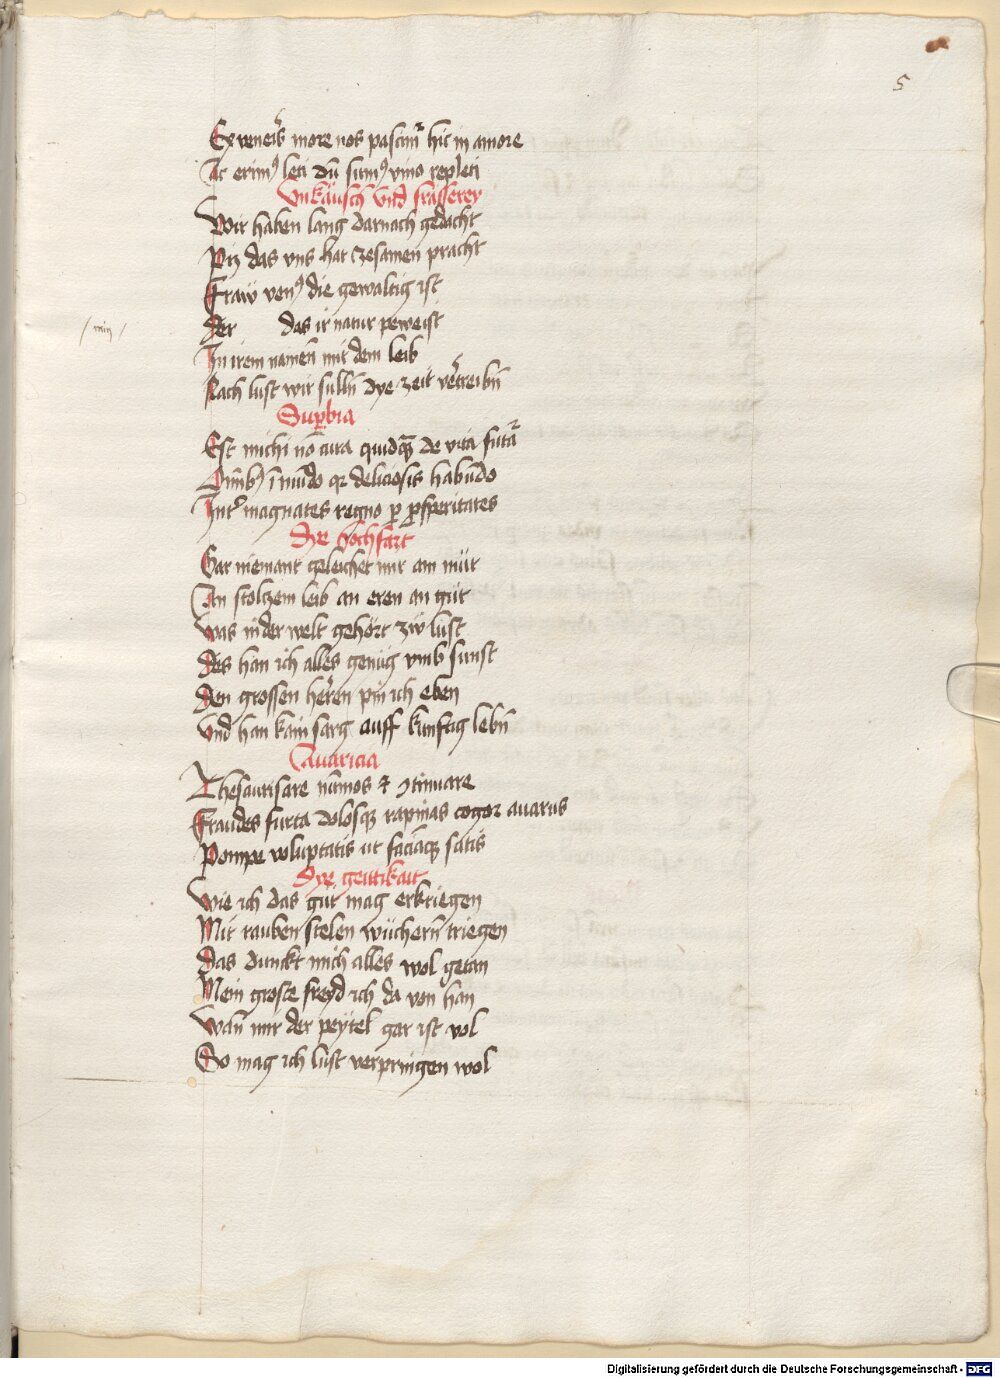 5
Ex veneris more nos pascimur hic in amore
Ac erimus leti dum sumus vino repleti
Vnkäusch vnd frässerey
Wir haben lang darnach gedacht
Piz das vns hat zesamen pracht
Fraw venus die gewaltig ist
Der das ir natur peweist
/ min /
In irem namen mit dem leib
Nach lust wir sulln dye zeit vertreibn
Superbia
Est michi non cura quidquam de vita futura
Omnibus in mundo quia deliciosis habundo
Inter magnates regno per prosperitates
Dye hochfart
Gar niemant geleichet mir am müt
An stolczem leib an eren an güt
Was in der welt gehört zw lust
Des han ich alles genüg vmb sunst
Den grossen herren pin ich eben
Vnd han kain sarg auff kunftig lebn
Auaricia
Thesaurisare nummos et continuare
Fraudes furta dolosque rapinas cogor auarus
Pompe voluptatis ut faciamque satis
Dye geitikait
Wie ich das gut mag erkriegen
Mit rauben stelen wüchern triegen
Das dunkt mich alles wol getan
Mein groste freyd ich da von han
Wan mir der peytel gar ist vol
So mag ich lust verpringen wol
Digitalisierung gefördert durch die Deutsche Forschungsgemeinschaft - DFG